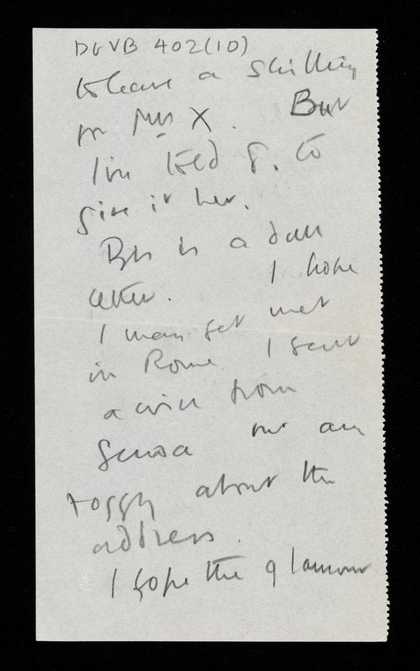 DGVB 402(10)
to leave a shilling
for Mrs X. But
I'm told G. to
give it her.
This is a dull
letter. I hope
I may get met
in Rome I sent
a wire from
Genoa but am
foggy about the
address.
I hope the glamour